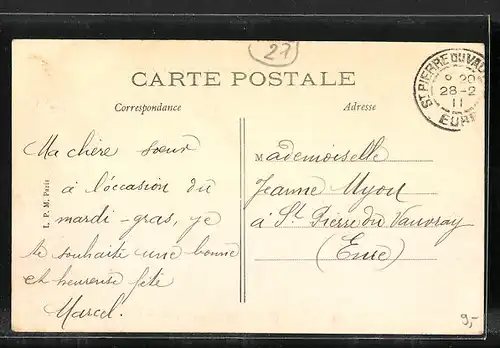 27
CARTE POSTALE
Correspondance
Adresse
ST PIERRE DU VAU
28-2
11
EURE
Ma chère soeur
à l'occasion du
mardi-gras, je
te souhaite une bonne
et heureuse fête
Marcel.
Mademoiselle
Jeanne
à St Pierre du Vauvray
(Eure)
L. P. M. Paris
9,-